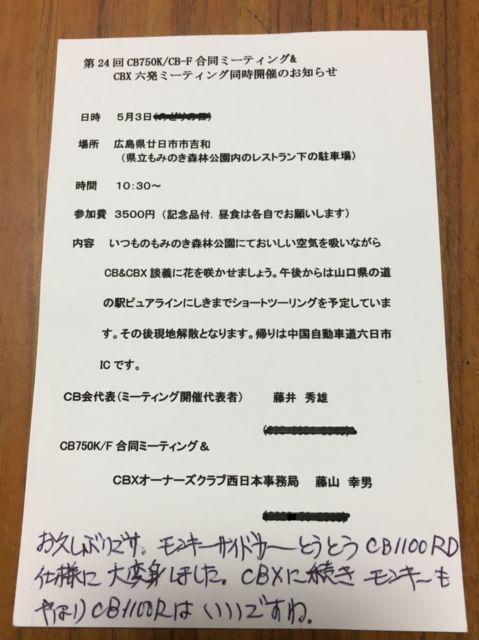 第24回CB750K/CB-F合同ミーティング&
CBX六発ミーティング同時開催のお知らせ
日時 5月3日
場所 広島県廿日市市吉和
（県立もみのき森林公園内のレストラン下の駐車場）
時間 10:30〜
参加費 3500円（記念品付．昼食は各自でお願いします）
内容 いつものもみのき森林公園にておいしい空気を吸いながら
CB&CBX談義に花を咲かせましょう。午後からは山口県の道
の駅ピュアラインにしきまでショートツーリングを予定していま
す。その後現地解散となります。帰りは中国自動車道六日市
ICです。
CB会代表（ミーティング開催代表者） 藤井 秀雄
CB750K/F合同ミーティング&
CBXオーナーズクラブ西日本事務局 藤山 幸男
お久しぶりです。モンキーサイドカーとうとうCB1100RD
仕様に大変身しました。CBXに続きモンキーも
やはりCB1100Rはいいですね。